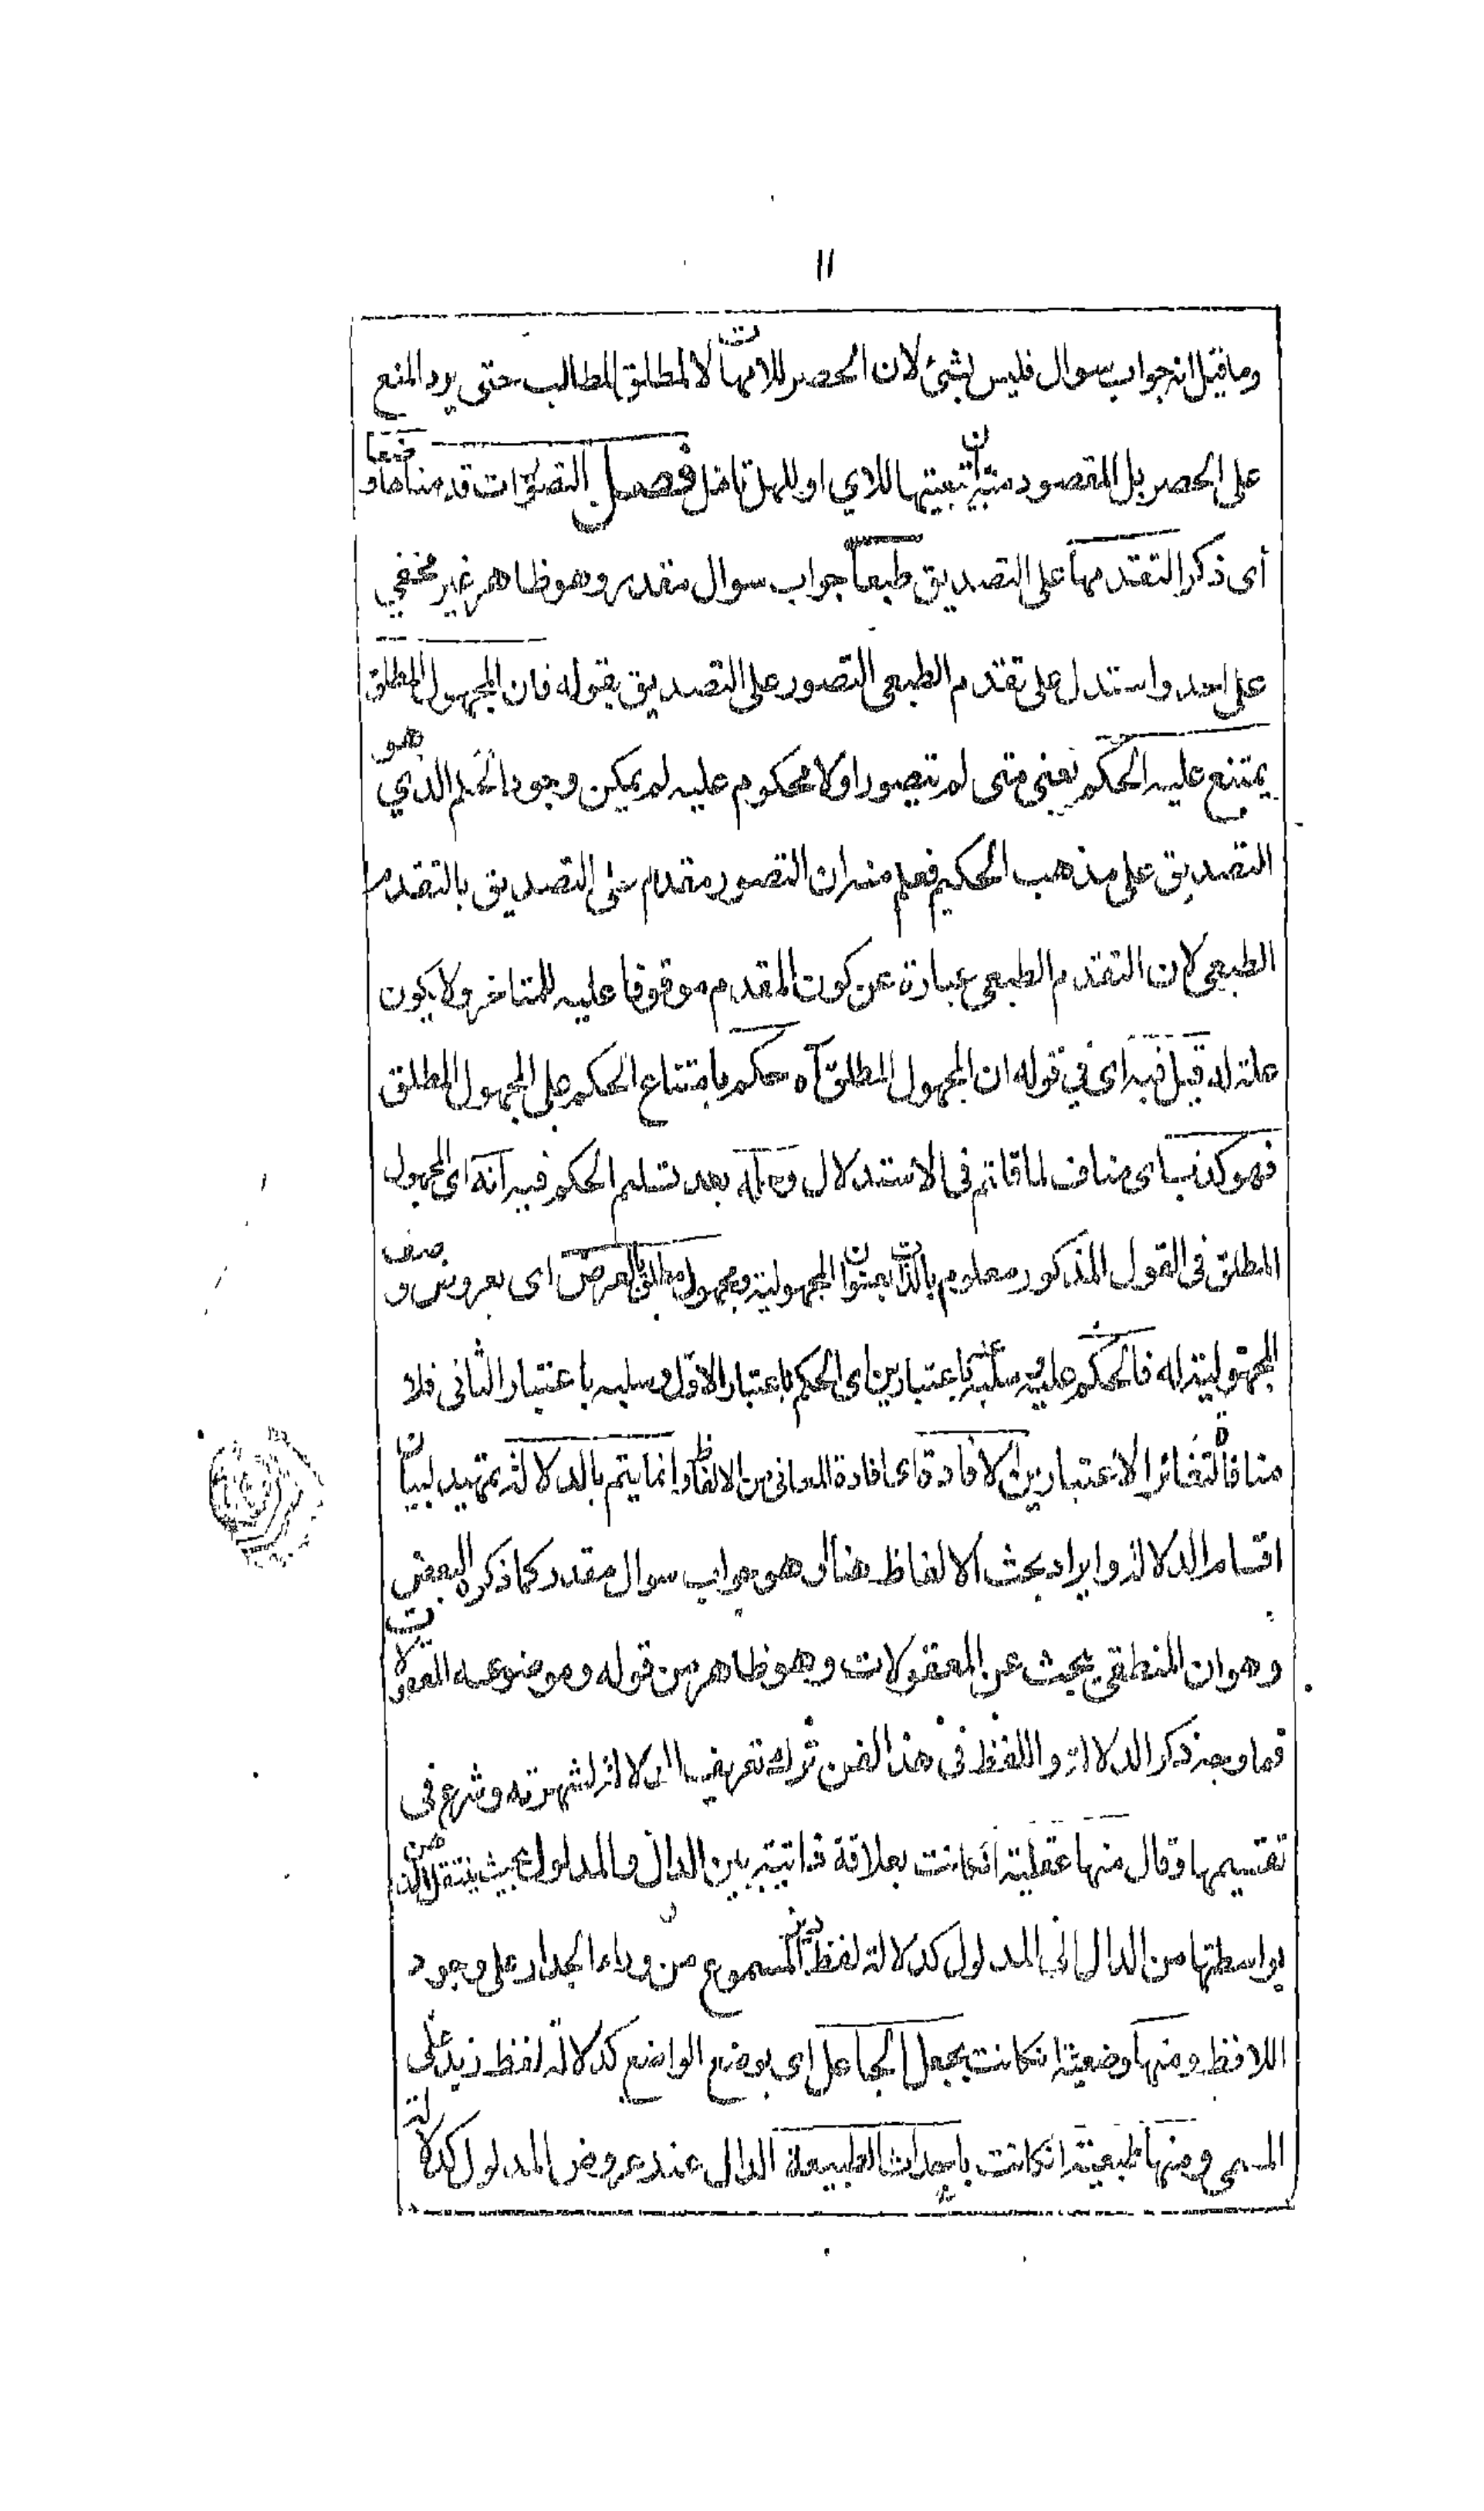 ۱۱
وما قيل انه جواب سوال فليس بشئ لان الحصر للامهات لا لمطلق المطالب حتى يرد المنع
على الحصر بل المقصود منه ان تبعيتها للاي او للهل تامل فصل التصورات قدمناها وضعا
أى ذكرا لتقدمها على التصديق طبعا جواب سوال مقدر وهو ظاهر غير مخفي
على احد واستدل على تقدم الطبعي التصور على التصديق بقوله فان المجهول المطلق
يمتنع عليه الحكم يعنى متى لم تيصور اولا محكوم عليه لم يمكن وجود الحكم الذي هو
التصديق على مذهب الحكيم فعلم منه ان التصور مقدم على التصديق بالتقدم
الطبعي لان التقدم الطبعي عبارة عن كون المقدم موقوفا عليه للمتاخر ولا يكون
علة له قيل فيه اى في قوله ان المجهول المطلق آه حكم بامتناع الحكم على المجهول المطلق
فهو كذب اى مناف لما قلتم فى الاستدلال وحله بعد تسليم الحكم فيه انه اى المجهول
المطلق فى القول المذكور معلوم بالذات بعنوان المجهولية ومجهول مطلق بالعرض اى بعروض وصف
المجهولية له فالحكم عليه وسلبه باعتبارين اى الحكم باعتبار الاول وسلبه باعتبار الثانى فلا
منافاة لتغائر الاعتبارين الافادة اى افادة المعانى من الالفاظ وانما يتم بالدلالة تمهيد لبيان
اقسام الدلالة وايراد بحث الالفاظ هنا او هو جواب سوال مقدر كما ذكره البعض
وهو ان المنطقى يبحث عن المعقولات وهو ظاهر من قوله وموضوعه المعقولات
فما وجه ذكر الدلالة واللفظ فى هذا الفن ثم ترك تعريف الدلالة لشهرته وشرع فى
تقسيمها وقال منها عقلية انكانت بعلاقة ذاتية بين الدال والمدلول بحيث ينتقل الذهن
بواسطتها من الدال الى المدلول كدلالة لفظ ديز المسموع من وراء الجدار على وجود
اللافظ ومنها وضعية انكانت بجعل الجاعل اى بوضع الواضع كدلالة لفظ زيد على
المسمى ومنها طبعية انكانت باحداث الطبيعة الدال عند عروض المدلول كدلالة